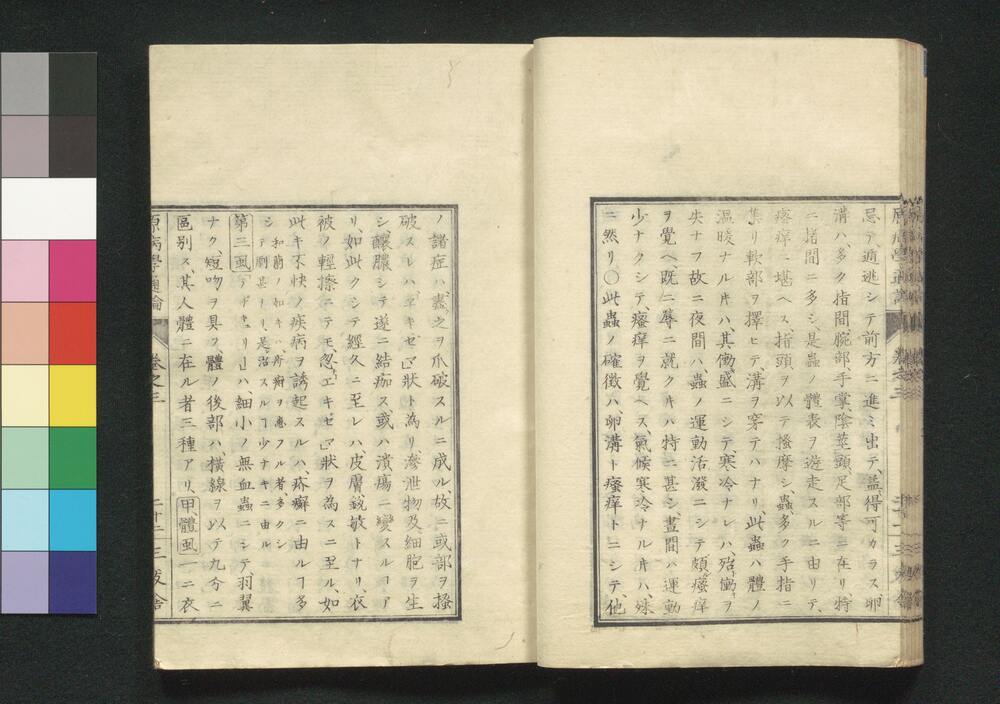 忌テ遁逃シテ前方ニ進ミ出テ、蓋得可カラス、卵
溝ハ多ク指間、腕部、手掌、陰莖頭、足部等ニ在リ、特
ニ指間ニ多シ、是蟲ノ體表ヲ遊走スルニ由リテ、
瘙痒ニ堪ヘス、指頭ヲ以テ搔摩シ、蟲多ク手指ニ
集リ軟部ヲ擇ヒテ、溝ヲ穿テハナリ、此蟲ハ體ノ
温暖ナル片ハ、其働盛ニシテ、寒冷ナレハ、殆働ヲ
失ナフ故ニ夜間ハ蟲ノ運動活潑ニシテ頗瘙痒
ヲ覺ヘ既ニ蓐ニ就クキハ特ニ甚シ、晝間ハ運動
少ナクシテ、瘙痒ヲ覺ヘス、氣候寒冷ナル片ハ、殊
ニ然リ〇此蟲ノ確徴ハ、卵溝ト瘙痒トニシテ、他
ノ諸症ハ、蟲之ヲ爪破スルニ成ル、故ニ或部ヲ搔
破スレハヱキゼㇺ狀ト為リ、滲泄物及細胞ヲ生
シ、釀膿シテ遂ニ結痂ス、或ハ潰瘍ニ變スルヿア
リ、如此クシテ經久ニ至レハ、皮膚銳敏トナリ、衣
被ノ輕擦ニテモ、忽エキゼㇺ狀ヲ為スニ至ル、如
此キ不快ノ疾病ヲ誘起スルハ、疥癬ニ由ルヿ多
シ 和蘭ノ如キハ、疥癬ヲ患フル者、多クシ
テ劇甚ナリ、是治スルヿ少ナキニ由ル
第三虱 ハ、細小ノ無血蟲ニシテ、羽翼
ナク、短吻ヲ具フ、體ノ後部ハ、橫線ヲ以テ九分ニ
區別ス、其人體ニ在ル者三種アリ、甲體虱 一ニ衣
原病學通論
卷之三
二十二
三友舍